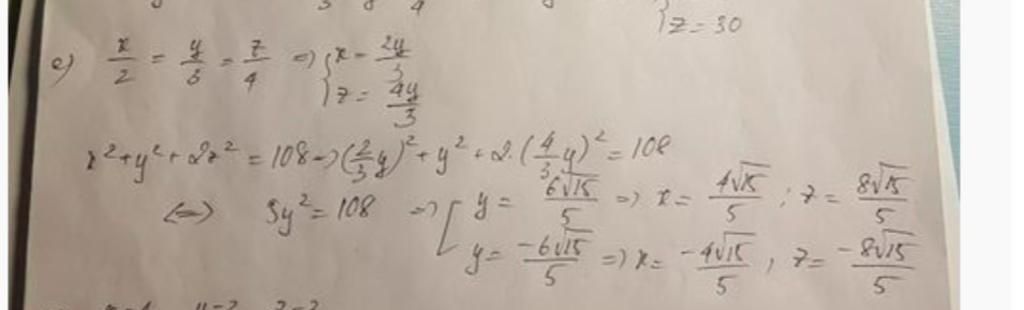 3 8 4
z = 30
e) x/2 = y/3 = z/4 => { x = 2y/3
z = 4y/3
x² + y² + 2z² = 108 => (2/3 y)² + y² + 2.(4/3 y)² = 108
<=> 5y² = 108 => [ y = 6√15/5 => x = 4√15/5 ; z = 8√15/5
y = -6√15/5 => x = -4√15/5 , z = -8√15/5